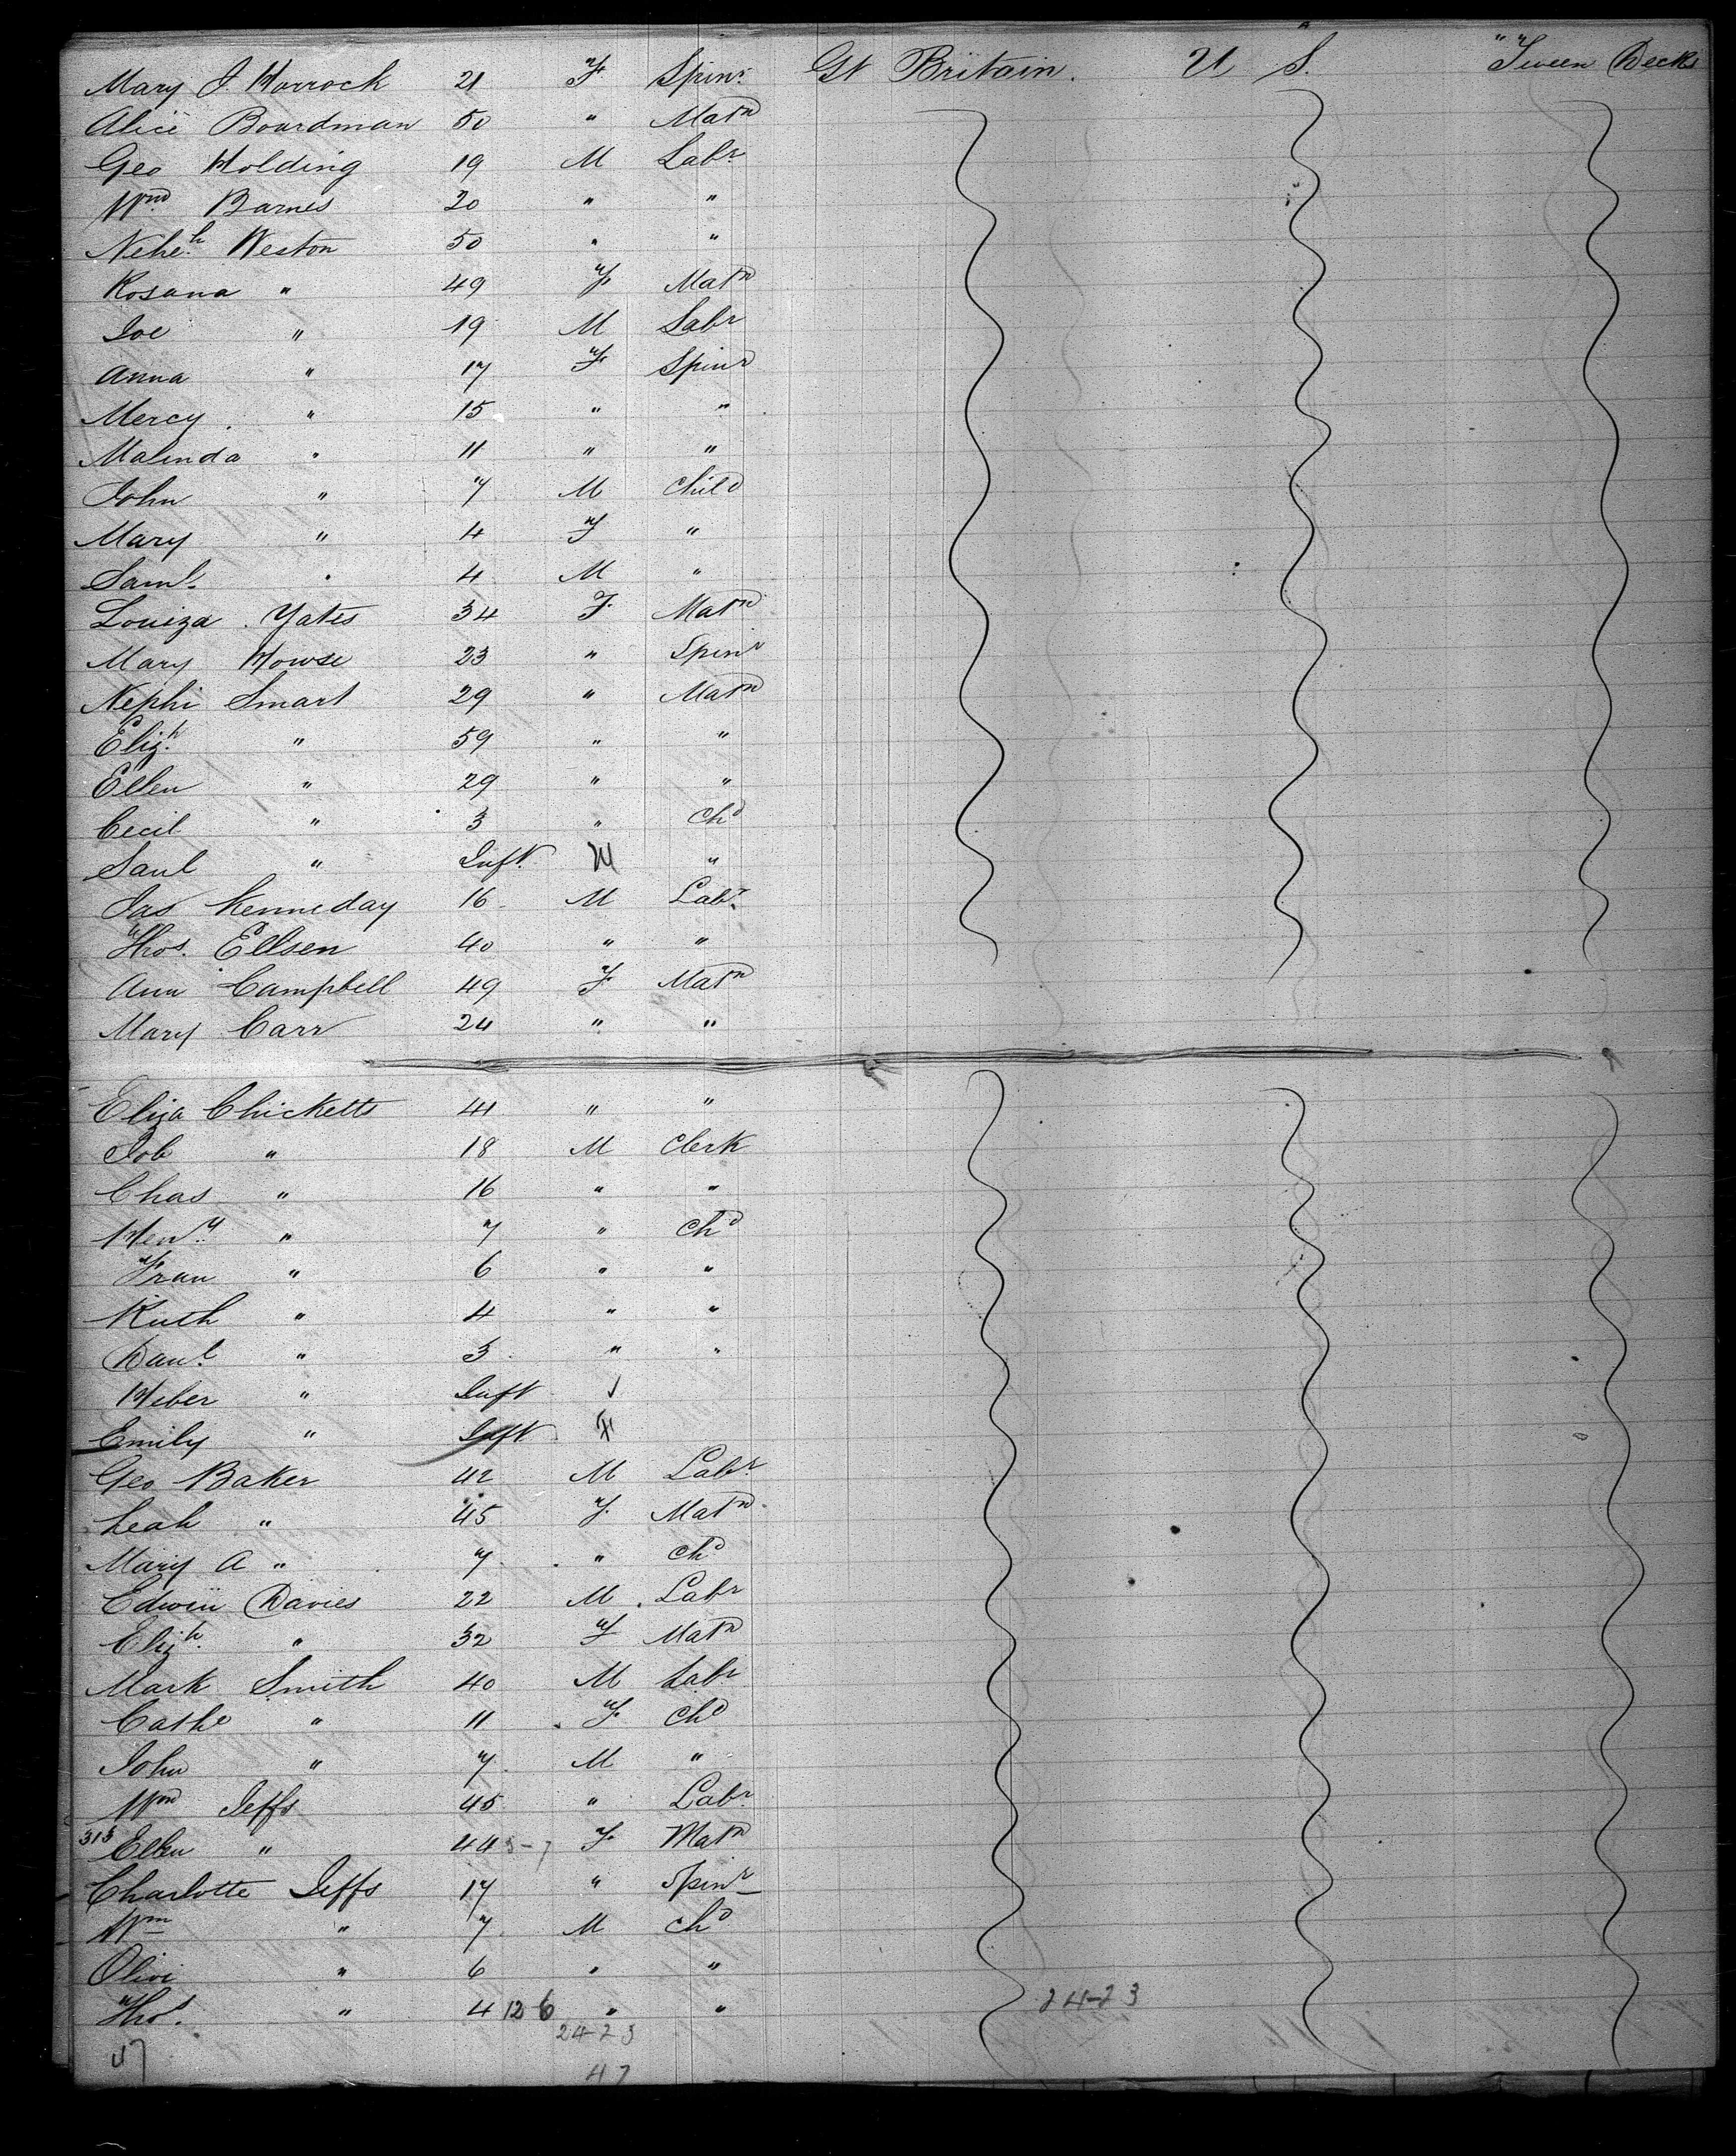 Mary J. Horrock 21 F Spinr Gt Britain. U S. 'Tween Decks
Alice Boardman 50 " Matn
Geo Holding 19 M Labr
Wm Barnes 20 " "
Neheh Weston 50 " "
Rosana " 49 F Matn
Joe " 19 M Labr
Anna " 17 F Spinr
Mercy " 15 " "
Malinda " 11 " "
John " 7 M Child
Mary " 4 F "
Saml. " 4 M "
Louiza Yates 34 F Matn
Mary Howse 23 " Spinr
Nephi Smart 29 " Matn
Elizh " 59 " "
Ellen " 29 " "
Cecil " 3 " Chd
Saul " Inft M "
Jas Kenneday 16 M Labr
Thos. Ellsen 40 " "
Ann Campbell 49 F Matn
Mary Carr 24 " "
Eliza Chicketts 41 " "
Job " 18 M Clerk
Chas " 16 " "
Heny " 7 " Chd
Fran " 6 " "
Ruth " 4 " "
Danl " 3 " "
Heber " Inft ✓
Emily " Inft F
Geo Baker 42 M Labr
Leah " 45 F Matn
Mary A " 7 " Chd
Edwin Davies 22 M Labr
Elizh " 32 F Matn
Mark Smith 40 M Labr
Cathe " 11 F Chd
John " 7 M "
Wm Jeffs 45 " Labr
313 Ellen " 44 3-7 F Matn
Charlotte Jeffs 17 " Spinr
Wm " 7 M Chd
Olive " 6 " "
Thos. " 4 12 6 " " 24-23
24-23
47 47